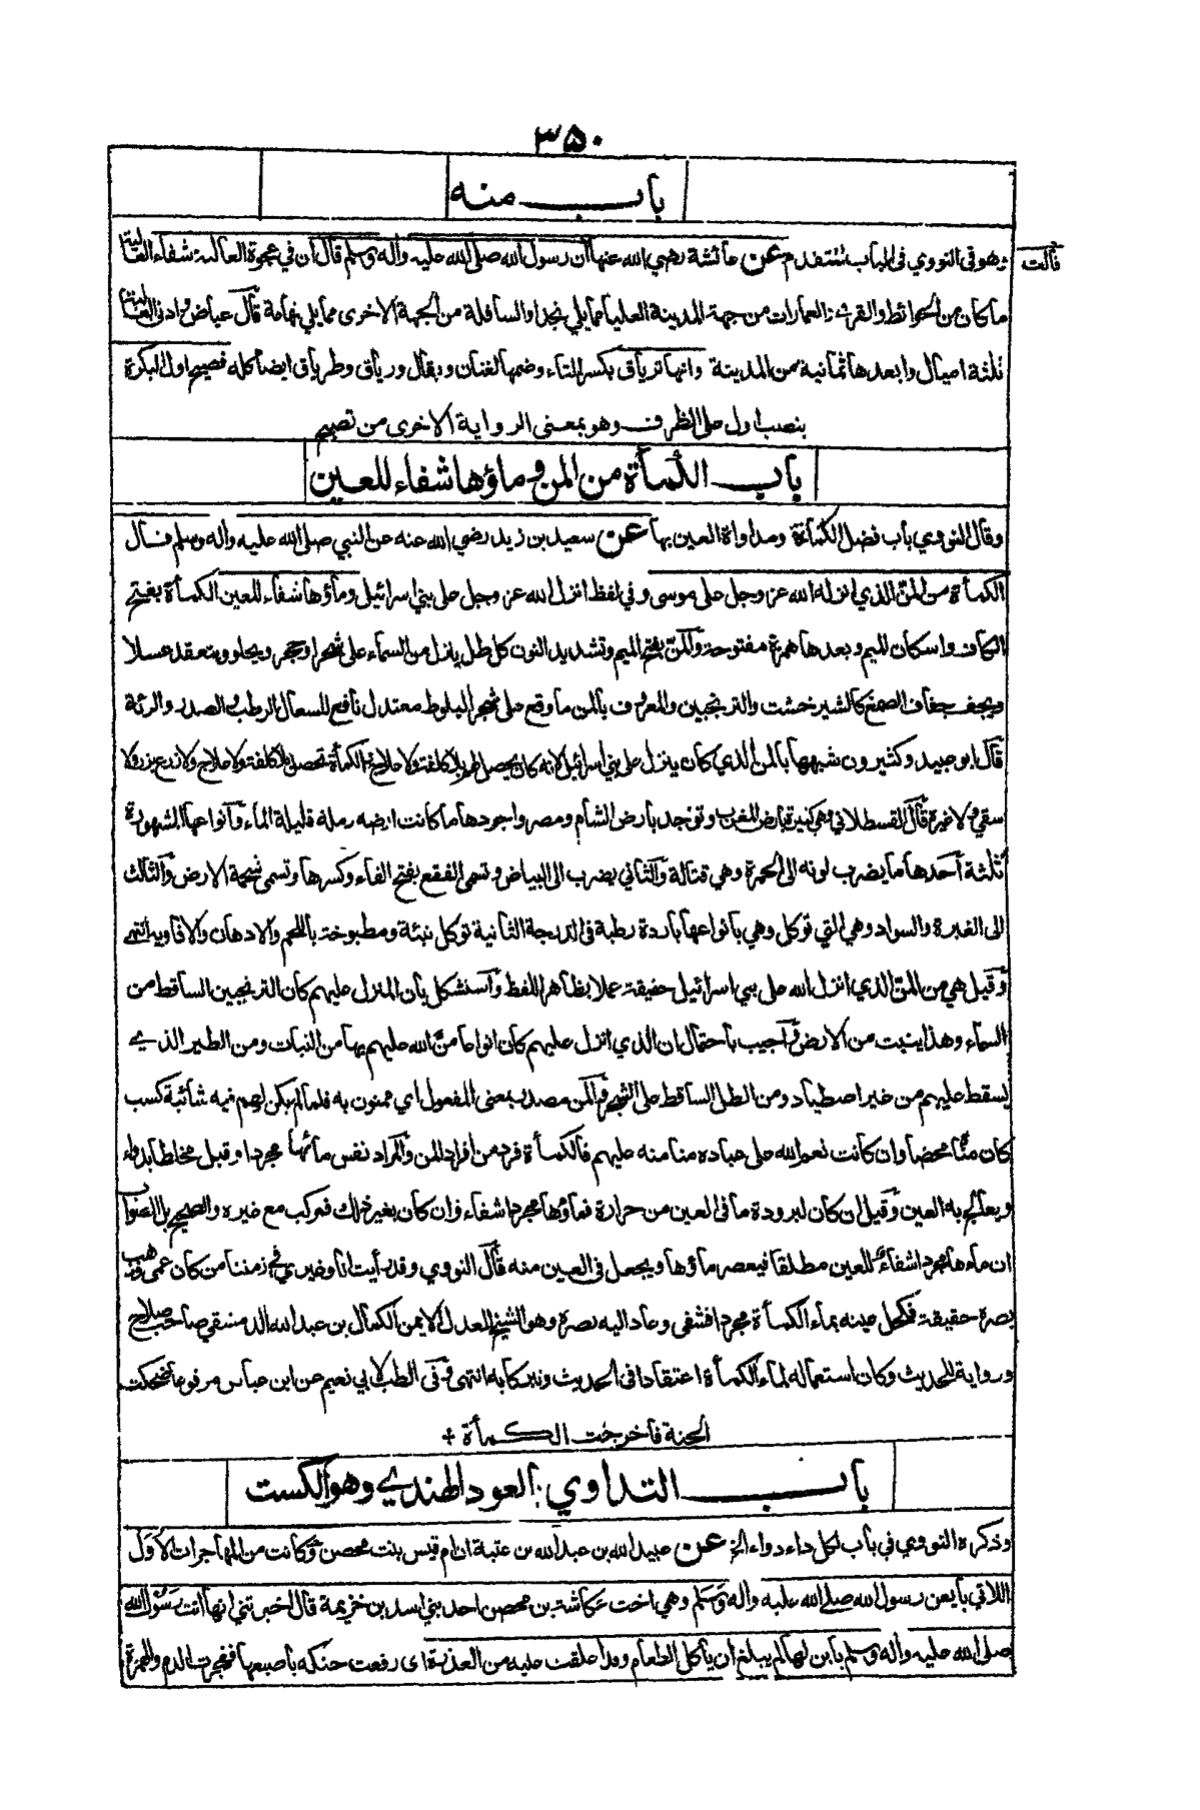 ٣٥٠
باب منه
وهو في النووي في الباب المتقدم عن عائشة رضي الله عنها ان رسول الله صلى الله عليه واله وسلم قال ان في عجوة العالية شفاء العالية
ما كان من الحوائط والقرى والعمارات من جهة المدينة العليا مما يلي نجدا والسافلة من الجهة الاخرى مما يلي تهامة قال عياض وادنى العالية
ثلثة اميال وابعدها ثمانية من المدينة وانها ترياق بكسر التاء وضمها لغتان ويقال درياق وطرياق ايضا كله فصيح اول البكرة
بنصب اول على الظرف وهو بمعنى الرواية الاخرى من تصبح
باب الكمأة من المن وماؤها شفاء للعين
وقال النووي باب فضل الكمأة ومداواة العين بها عن سعيد بن زيد رضي الله عنه عن النبي صلى الله عليه واله وسلم قال
الكمأة من المن الذي انزله الله عز وجل على موسى وفي لفظ انزل الله عز وجل على بني اسرائيل وماؤها شفاء للعين الكمأة بفتح
الكاف واسكان الميم وبعدها همزة مفتوحة والمن بفتح الميم وتشديد النون كل طل ينزل من السماء على شجر او حجر ويحلو وينعقد عسلا
ويجف جفاف الصمغ كالشيرخشت والترنجبين والمعروف بالمن ما وقع على شجر البلوط معتدل نافع للسعال الرطب والصدر والرئة
قال ابو عبيد وكثيرون شبهها بالمن الذي كان ينزل على بني اسرائيل لانه كان يحصل لهم بلا كلفة ولا علاج والكمأة تحصل بلا كلفة ولا علاج ولا زرع بزر ولا
سقي ولا غيرة قال القسطلاني وهي كثيرة بارض المغرب وتوجد بارض الشام ومصر واجودها ما كانت ارضه رملة قليلة الماء وانواعها المشهورة
ثلثة احدها ما يضرب لونه الى الحمرة وهي قتالة والثاني يضرب الى البياض وتسمى الفقع بفتح الفاء وكسرها وتسمى شحمة الارض والثالث
الى الغبرة والسواد وهي التي توكل وهي بانواعها باردة رطبة في الدرجة الثانية توكل نيئة ومطبوخة باللحم والادهان والافاويه انتهى
وقيل هي من المن الذي انزل الله على بني اسرائيل حقيقة عملا بظاهر اللفظ واستشكل بان المنزل عليهم كان الترنجبين الساقط من
السماء وهذا ينبت من الارض واجيب باحتمال ان الذي انزل عليهم كان انواعا من الله عليهم بها من النبات ومن الطير الذي
يسقط عليهم من غير اصطياد ومن الطل الساقط على الشجر والمن مصدر بمعنى المفعول اي ممنون به فلما لم يكن لهم فيه شائبة كسب
كان منا محضا وان كانت نعم الله على عباده منا منه عليهم فالكمأة فرد من افراد المن والمراد نفس مائها مجردا وقيل مخلطا بدواء
ويعالج به العين وقيل ان كان لبرودة ما في العين من حرارة فماؤها مجردا شفاء وان كان بغير ذلك فمركب مع غيره والصحيح بل الصواب
ان ماءها مجردا شفاء للعين مطلقا فيعصر ماؤها ويجعل في العين منه قال النووي وقد رأيت انا وغيري في زمننا من كان عمي وذهب
بصره حقيقة فكحل عينه بماء الكمأة مجردا فشفى وعاد اليه بصره وهو الشيخ العدل الايمن الكمال بن عبد الله الدمشقي صاحب صلاح
ورواية للحديث وكان استعماله لماء الكمأة اعتقادا في الحديث وتبركا به انتهى وفي الطب لابي نعيم عن ابن عباس مرفوعا ضحكت
الجنة فاخرجت الكمأة +
باب التداوي بالعود الهندي وهو الكست
وذكره النووي في باب لكل داء دواء الخ عن عبيد الله بن عبد الله بن عتبة ان ام قيس بنت محصن وكانت من المهاجرات الاول
اللاتي بايعن رسول الله صلى الله عليه واله وسلم وهي اخت عكاشة بن محصن احد بني اسد بن خزيمة قال اخبرتني انها اتت رسول الله
صلى الله عليه واله وسلم بابن لها لم يبلغ ان ياكل الطعام وقد اعلقت عليه من العذرة اى رفعت حنكه باصبعها ففجرت الدم والعذرة
قالت